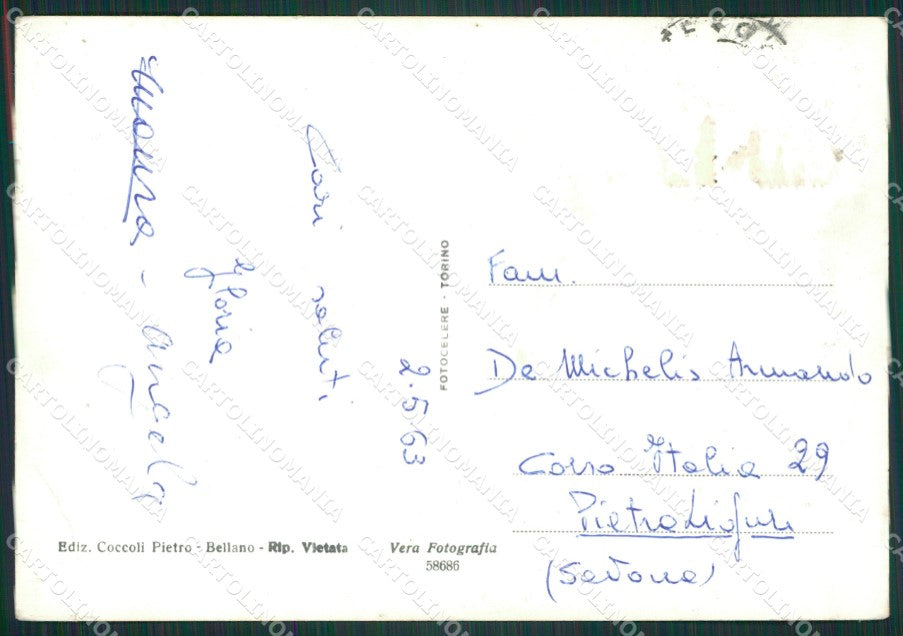 2.5.63
Cari saluti
Gloria
Mamma - Angelo
FOTOCELERE - TORINO
Fam.
De Michelis Armando
Corso Italia 29
Pietra Ligure
(Savona)
Ediz. Coccoli Pietro - Bellano - Rip. Vietata
Vera Fotografia
58686
CARTOLINOMANIA